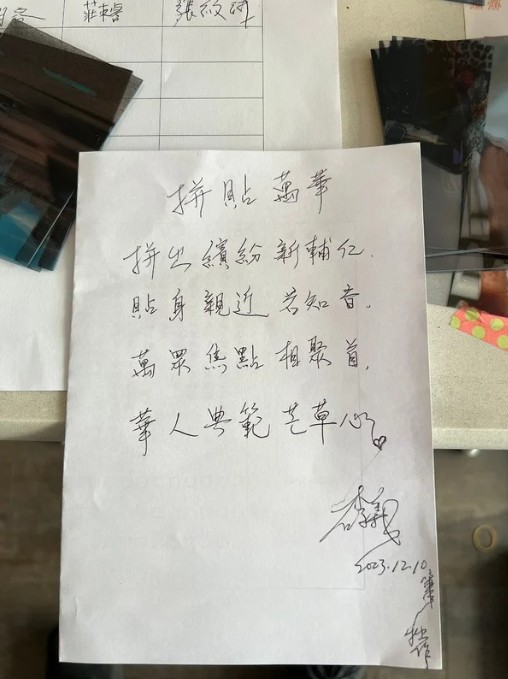 莊束睿 張紋瑋
拼貼萬華
拼出繽紛新輔仁.
貼身親近若知音.
萬眾焦點相聚首.
華人典範芒草心
2023.12.10.
拙作